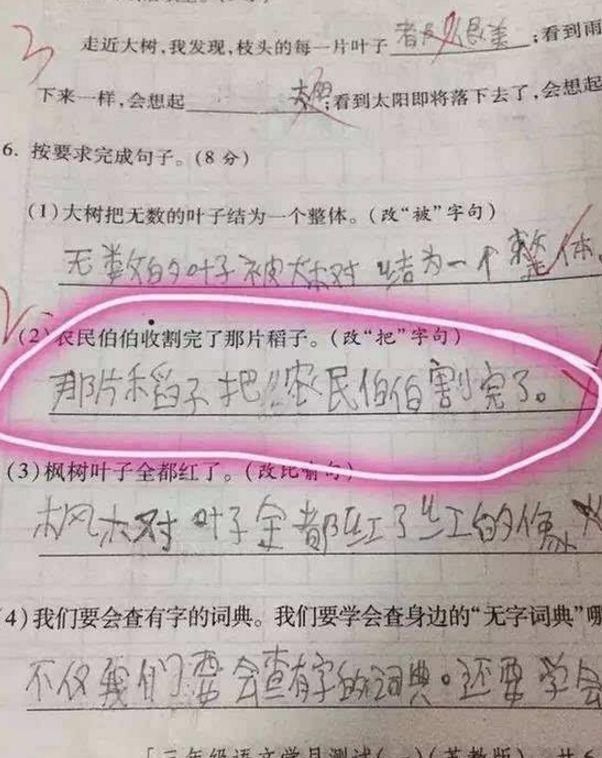 走近大树,我发现,枝头的每一片叶子 都很美 ;看到雨
下来一样,会想起 ;看到太阳即将落下去了,会想起
6. 按要求完成句子。(8分)
(1)大树把无数的叶子结为一个整体。(改“被”字句)
无数的叶子被大树结为一个整体。
(2)农民伯伯收割完了那片稻子。(改“把”字句)
那片稻子把农民伯伯割完了。
(3)枫树叶子全都红了。(改比喻句)
枫树叶子全都红了红的像
(4)我们要会查有字的词典。我们要学会查身边的“无字词典”哪
不仅我们要会查有字的词典。还要学会